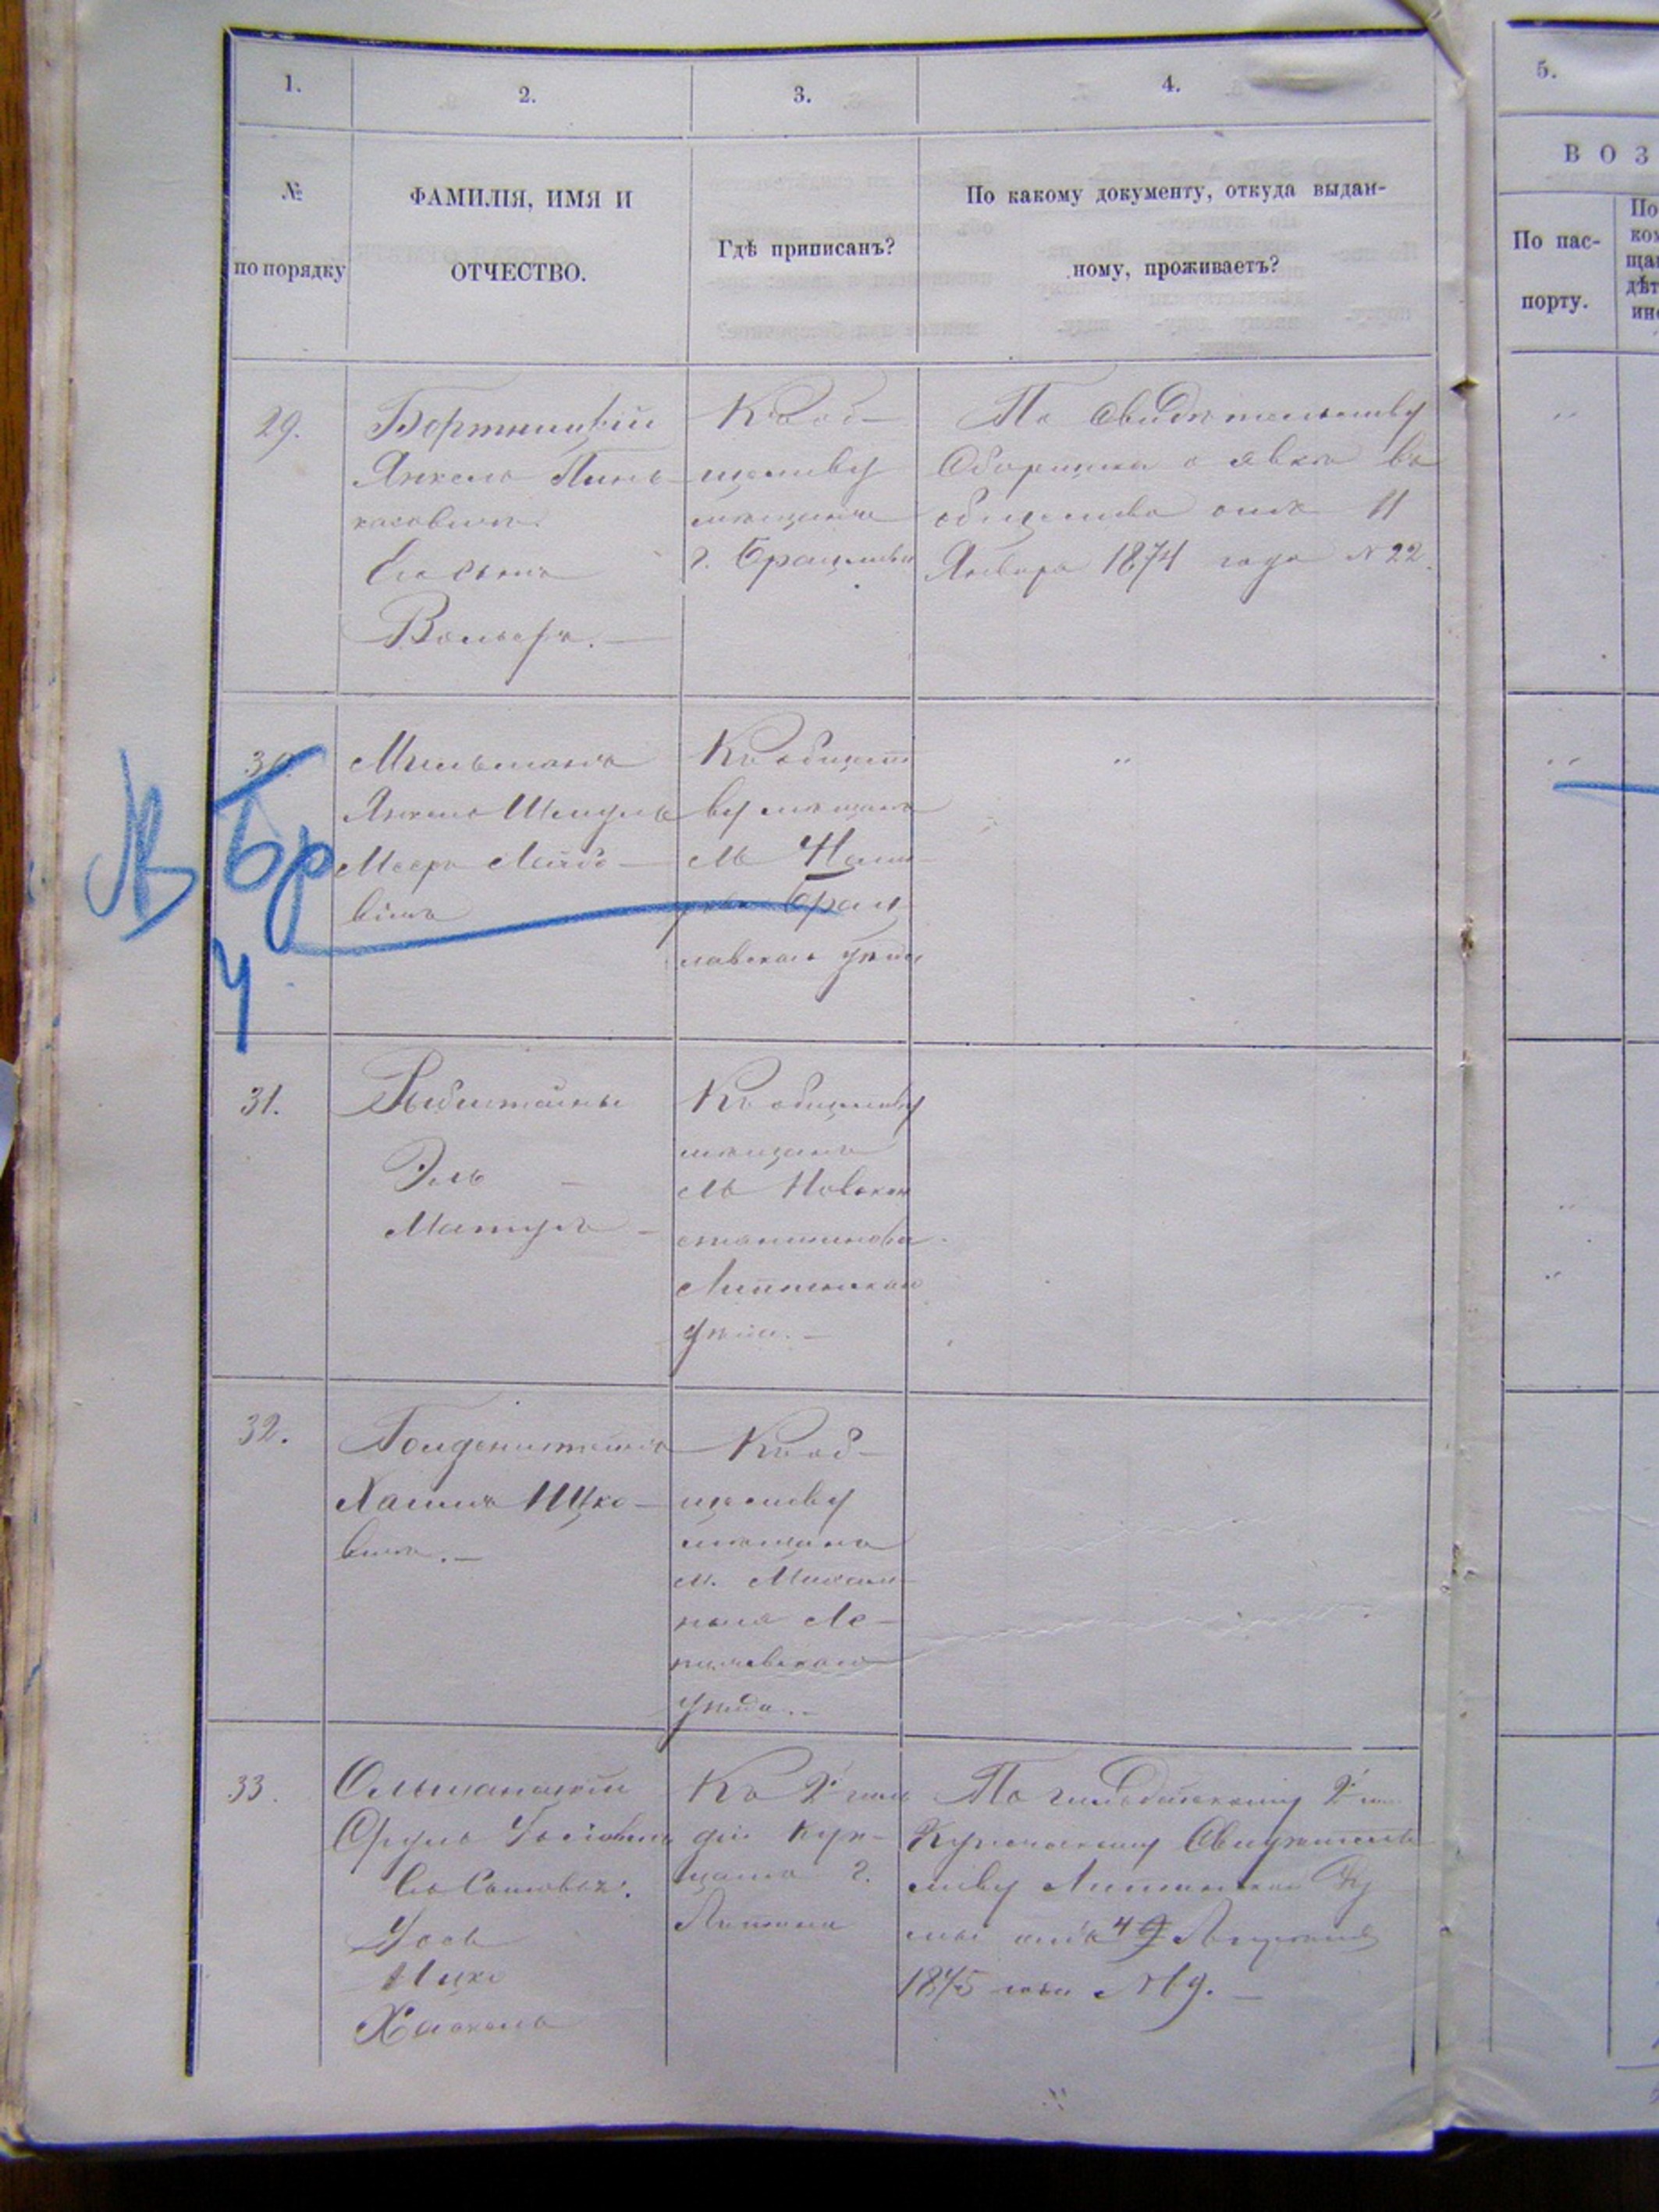 1.
2.
3.
4.
5.
№
по порядку
ФАМИЛІЯ, ИМЯ И
ОТЧЕСТВО.
Гдѣ приписанъ?
По какому документу, откуда выдан-
ному, проживаетъ?
ВОЗ
По пас-
порту.
По
29.
Бортницкій
Янкель Пинь-
касовичъ
Его сынъ
Вольфъ. —
Къ об-
ществу
мѣщанъ
г. Брацлава
По свидѣтельству
Сборщика о явкѣ въ
общество отъ 11
Января 1874 года № 22.
30.
Мильманъ
Янкель Шмуль
Мееръ Лейбо-
вичъ
Къ общест
ву мѣщанъ
м.
Брац
лавскаго уѣзда
Бр
Ч
31.
Эль —
Къ обществу
мѣщанъ
м. Новокон
стантинова
Литинскаго
уѣзда. —
32.
Гольденштейнъ
Хаимъ Ицко-
вичъ. —
Къ об-
ществу
мѣщанъ
м. Михам-
поля Ле-
тичевскаго
уѣзда. —
33.
Ольшанскій
Срулъ
Его Сыновья:
Ицко
Хаскель
Къ 2й гиль
діи куп-
цамъ г.
Литина
По гильдійскому 2й
Купеческому Свидѣтель
ству Литинской Ду
мы отъ 4
1875 года № 9. —